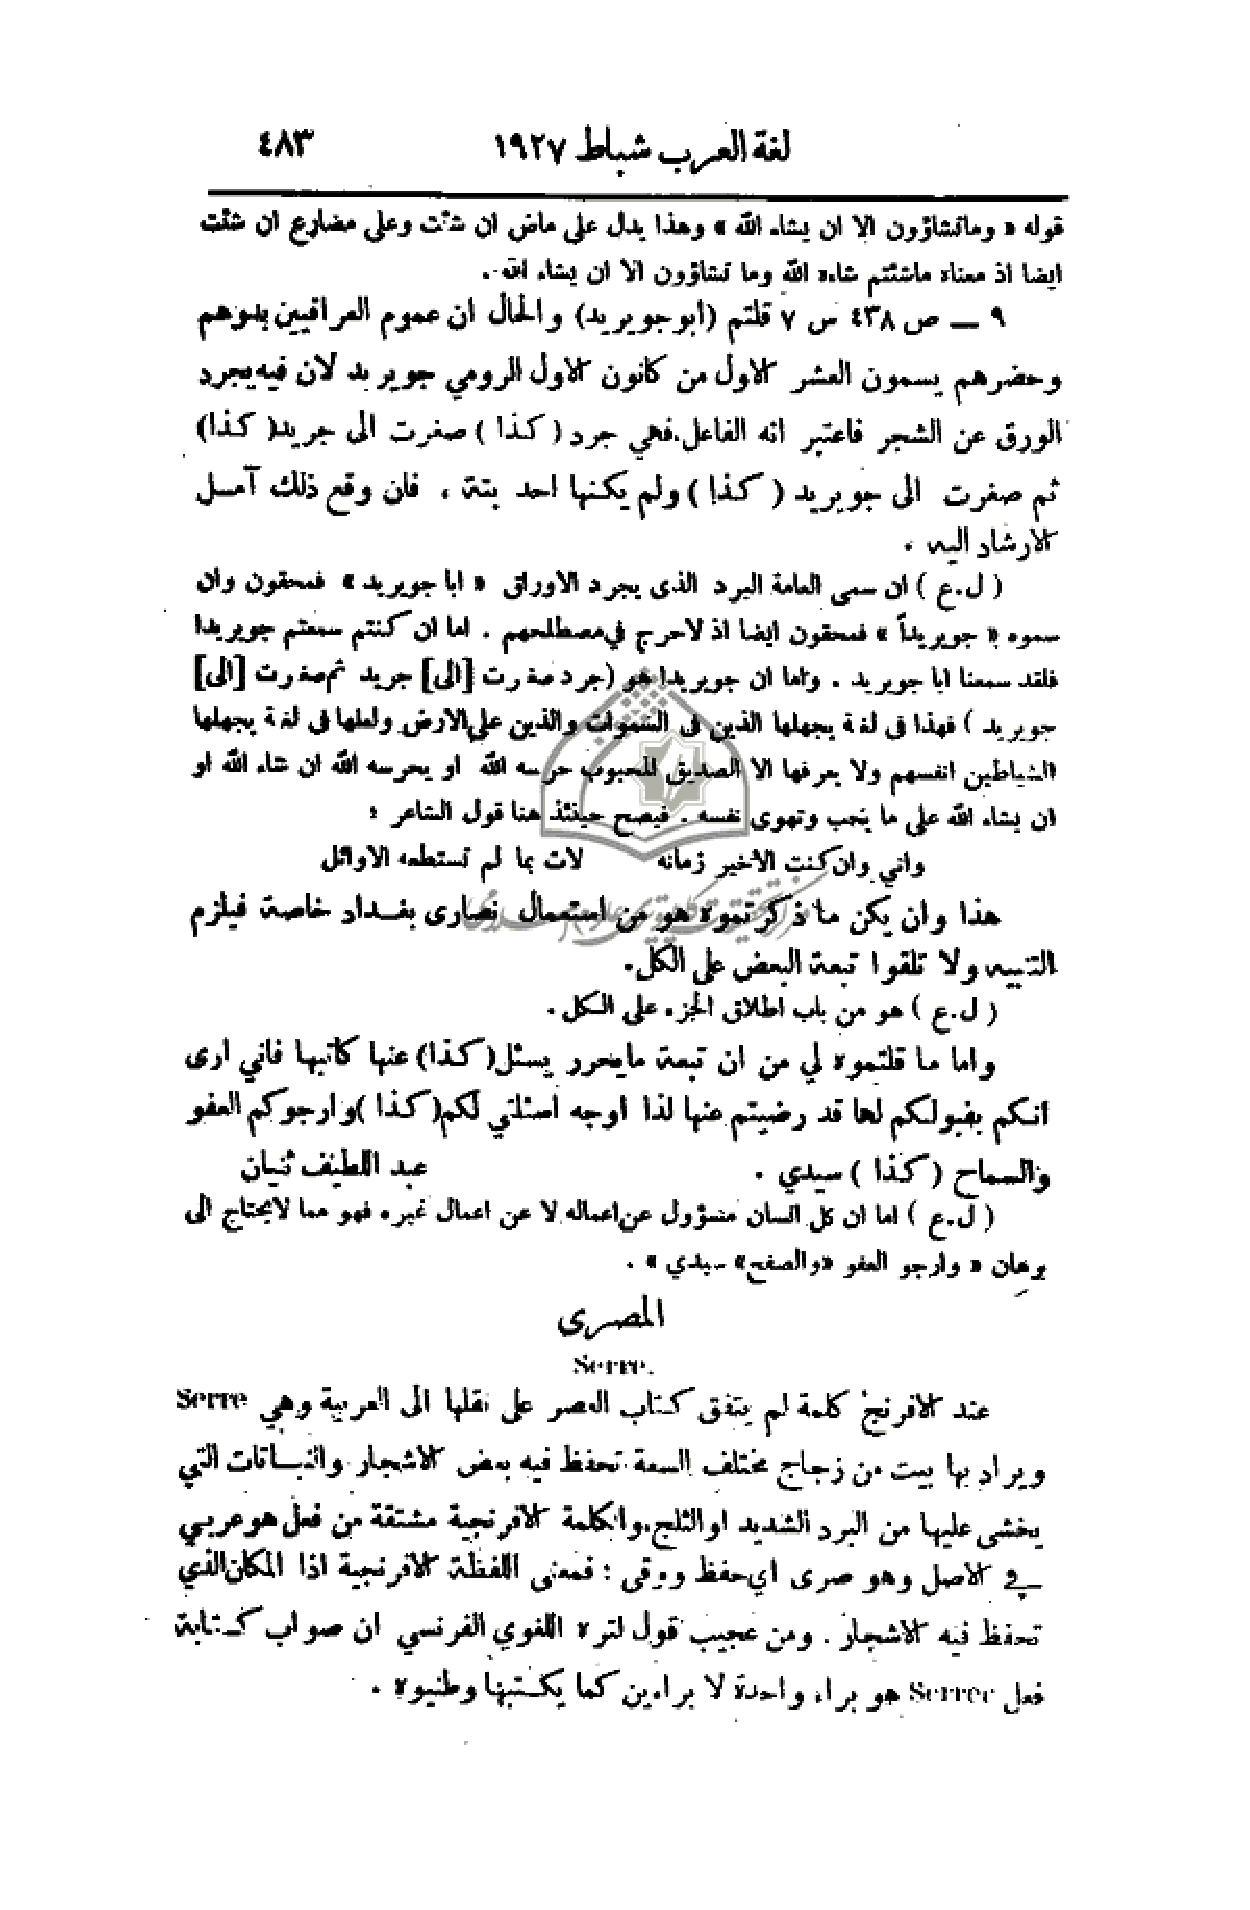 لغة العرب شباط ١٩٢٧ ٤٨٣
قوله « وماتشاؤون الا ان يشاء الله » وهذا يدل على ماض ان شئت وعلى مضارع ان شئت
ايضا اذ معناه ماشئتم شاءه الله وما تشاؤون الا ان يشاء الله .
٩ — ص ٤٣٨ س ٧ قلتم (أبو جويريد) والحال ان عموم العراقيين بدوهم
وحضرهم يسمون العشر الاول من كانون الاول الرومي جويريد لان فيه يجرد
الورق عن الشجر فاعتبر انه الفاعل. فهي جرد ( كذا ) صغرت الى جريد( كذا)
ثم صغرت الى جويريد ( كذا ) ولم يكنها احد بتة ، فان وقع ذلك آمل
الارشاد اليه .
( ل.ع ) ان سمى العامة البرد الذى يجرد الاوراق « ابا جويريد » فمحقون وان
سموه « جويريداً » فمحقون ايضا اذ لاحرج في مصطلحهم . اما ان كنتم سمعتم جويريدا
فلقد سمعنا ابا جويريد . واما ان جويريدا هو (جرد صغرت [الى] جريد ثم صغرت [الى]
جويريد ) فهذا فى لغة يجهلها الذين فى السموات والذين على الارض ولعلها فى لغة يجهلها
الشياطين انفسهم ولا يعرفها الا الصديق المحبوب حرسه الله او يحرسه الله ان شاء الله او
ان يشاء الله على ما يحب وتهوى نفسه . فيصح حينئذ هنا قول الشاعر :
واني وان كنت الاخير زمانه لات بما لم تستطعه الاوائل
هذا وان يكن ما ذكرتموه هو من استعمال نصارى بغداد خاصة فيلزم
التنبيه ولا تلقوا تبعة البعض على الكل.
( ل.ع ) هو من باب اطلاق الجزء على الكل .
واما ما قلتموه لي من ان تبعة مايحرر يسئل( كذا) عنها كاتبها فاني ارى
انكم بقبولكم لها قد رضيتم عنها لذا اوجه اسئلتي لكم( كذا )وارجوكم العفو
والسماح ( كذا ) سيدي . عبد اللطيف ثنيان
( ل.ع ) اما ان كل انسان مسؤول عن اعماله لا عن اعمال غيره فهو مما لايحتاج الى
برهان « وارجو العفو «والصفح» سيدي » .
المصرى
Serre.
عند الافرنج كلمة لم يتفق كتاب العصر على نقلها الى العربية وهي Serre
ويراد بها بيت من زجاج مختلف السعة تحفظ فيه بعض الاشجار والنباتات التي
يخشى عليها من البرد الشديد او الثلج. والكلمة الافرنجية مشتقة من فعل هو عربي
في الاصل وهو صرى اي حفظ ووقى : فمعنى اللفظة الافرنجية اذا المكان الذي
تحفظ فيه الاشجار . ومن عجيب قول لتره اللغوي الفرنسي ان صواب كتابة
فعل Serrer هو براء واحدة لا براءين كما يكتبها وطنيوه .